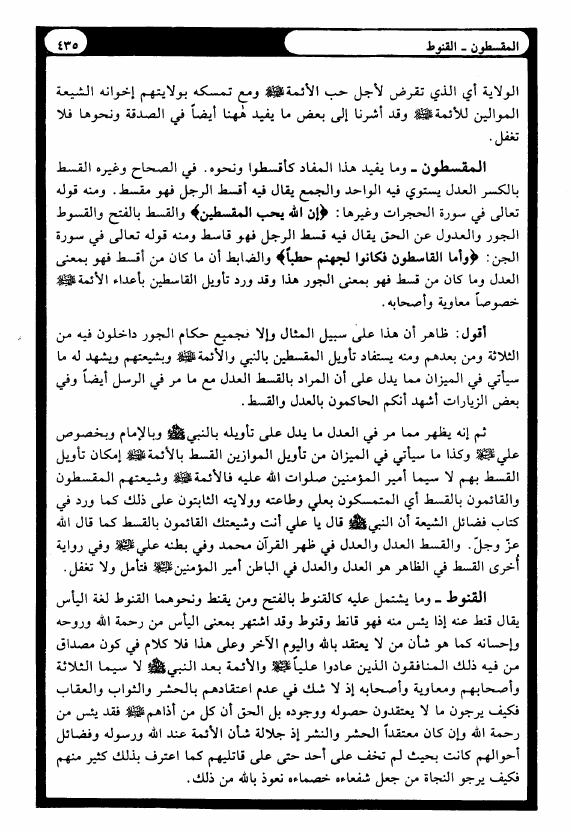 المقسطون ـ القنوط
٤٣٥
الولاية أي الذي تقرض لأجل حب الأئمة ﷺ ومع تمسكه بولايتهم إخوانه الشيعة
الموالين للأئمة ﷺ وقد أشرنا إلى بعض ما يفيد ههنا أيضاً في الصدقة ونحوها فلا
تغفل.
المقسطون ـ وما يفيد هذا المفاد كأقسطوا ونحوه. في الصحاح وغيره القسط
بالكسر العدل يستوي فيه الواحد والجمع يقال فيه أقسط الرجل فهو مقسط. ومنه قوله
تعالى في سورة الحجرات وغيرها: ﴿إن الله يحب المقسطين﴾ والقسط بالفتح والقسوط
الجور والعدول عن الحق يقال فيه قسط الرجل فهو قاسط ومنه قوله تعالى في سورة
الجن: ﴿وأما القاسطون فكانوا لجهنم حطباً﴾ والضابط أن ما كان من أقسط فهو بمعنى
العدل وما كان من قسط فهو بمعنى الجور هذا وقد ورد تأويل القاسطين بأعداء الأئمة ﷺ
خصوصاً معاوية وأصحابه.
أقول: ظاهر أن هذا على سبيل المثال وإلا فجميع حكام الجور داخلون فيه من
الثلاثة ومن بعدهم ومنه يستفاد تأويل المقسطين بالنبي والأئمة ﷺ وبشيعتهم ويشهد له ما
سيأتي في الميزان مما يدل على أن المراد بالقسط العدل مع ما مر في الرسل أيضاً وفي
بعض الزيارات أشهد أنكم الحاكمون بالعدل والقسط.
ثم إنه يظهر مما مر في العدل ما يدل على تأويله بالنبي ﷺ وبالإمام وبخصوص
علي ﷺ وكذا ما سيأتي في الميزان من تأويل الموازين القسط بالأئمة ﷺ إمكان تأويل
القسط بهم لا سيما أمير المؤمنين صلوات الله عليه فالأئمة ﷺ وشيعتهم المقسطون
والقائمون بالقسط أي المتمسكون بعلي وطاعته وولايته الثابتون على ذلك كما ورد في
كتاب فضائل الشيعة أن النبي ﷺ قال يا علي أنت وشيعتك القائمون بالقسط كما قال الله
عزّ وجلّ. والقسط العدل والعدل في ظهر القرآن محمد وفي بطنه علي ﷺ وفي رواية
أُخرى القسط في الظاهر هو العدل والعدل في الباطن أمير المؤمنين ﷺ فتأمل ولا تغفل.
القنوط ـ وما يشتمل عليه كالقنوط بالفتح ومن يقنط ونحوهما القنوط لغة اليأس
يقال قنط عنه إذا يئس منه فهو قانط وقنوط وقد اشتهر بمعنى اليأس من رحمة الله وروحه
وإحسانه كما هو شأن من لا يعتقد بالله واليوم الآخر وعلى هذا فلا كلام في كون مصداق
من فيه ذلك المنافقون الذين عادوا علياً ﷺ والأئمة بعد النبي ﷺ لا سيما الثلاثة
وأصحابهم ومعاوية وأصحابه إذ لا شك في عدم اعتقادهم بالحشر والثواب والعقاب
فكيف يرجون ما لا يعتقدون حصوله ووجوده بل الحق أن كل من أذاهم ﷺ فقد يئس من
رحمة الله وإن كان معتقداً الحشر والنشر إذ جلالة شأن الأئمة عند الله ورسوله وفضائل
أحوالهم كانت بحيث لم تخف على أحد حتى على قاتليهم كما اعترف بذلك كثير منهم
فكيف يرجو النجاة من جعل شفعاءه خصماءه نعوذ بالله من ذلك.